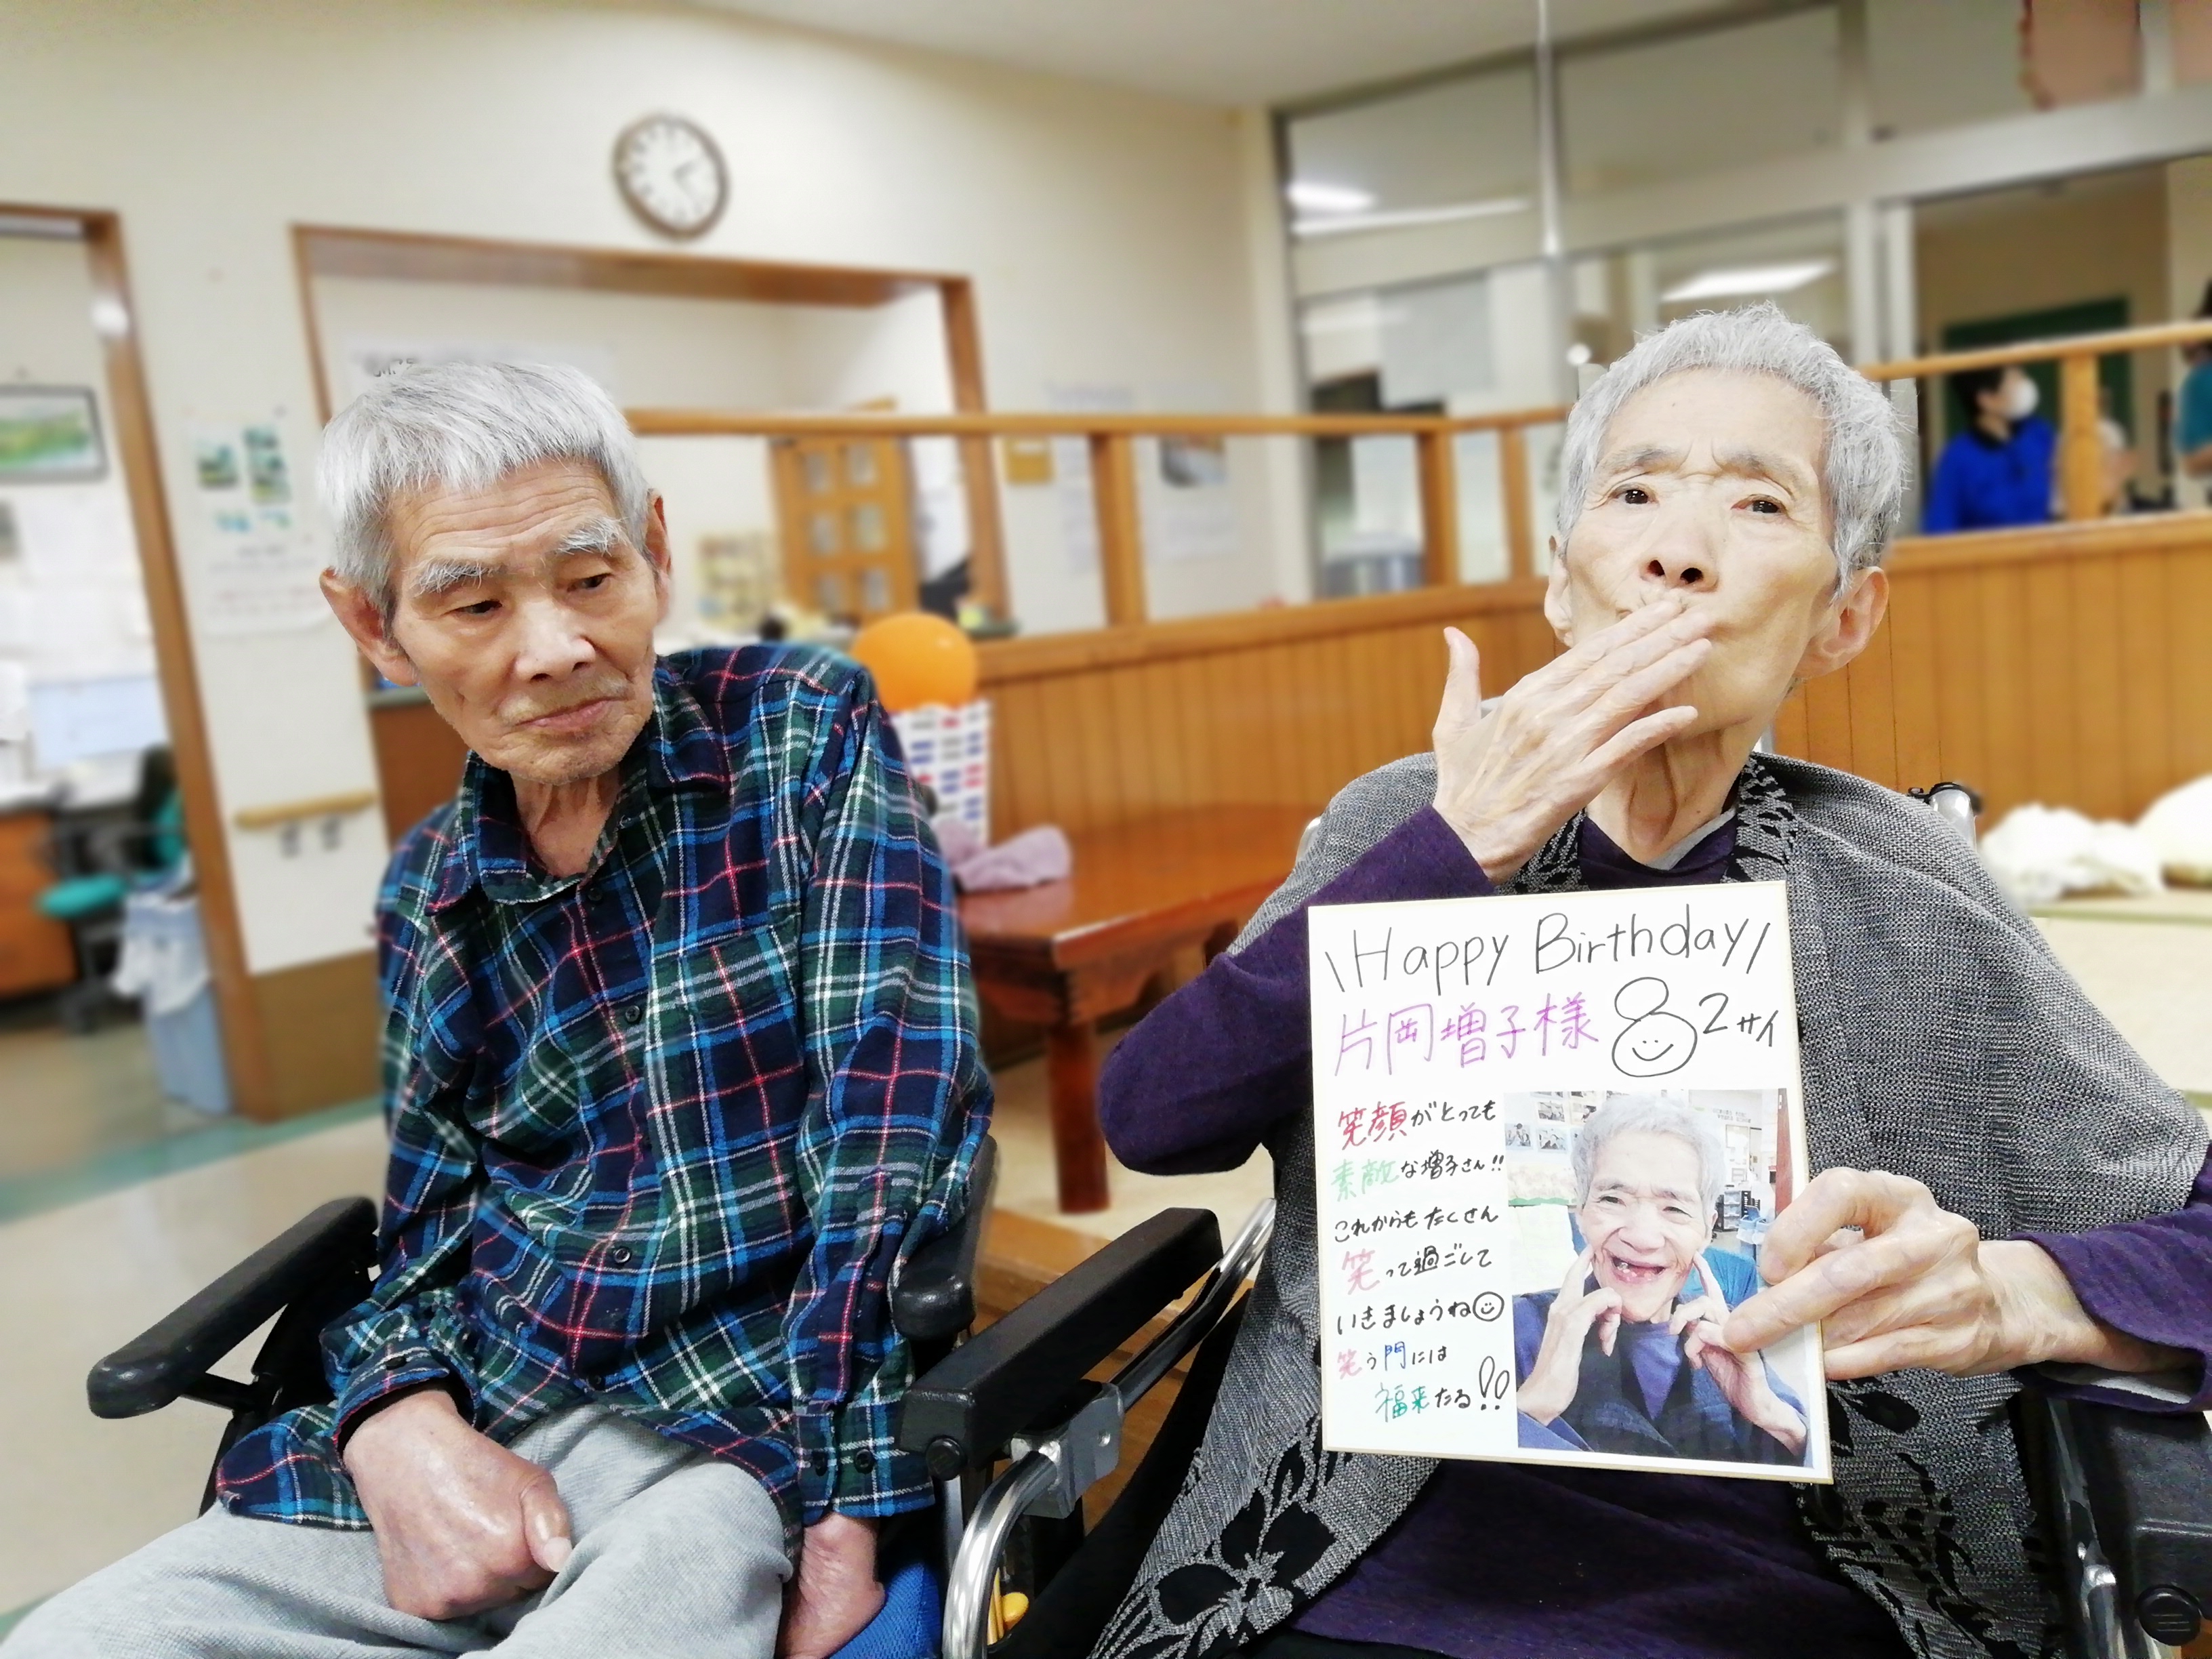 \Happy Birthday/
片岡増子様 82サイ
笑顔がとっても
素敵な増子さん!!
これからもたくさん
笑って過ごして
いきましょうね
笑う門には
福来たる!!